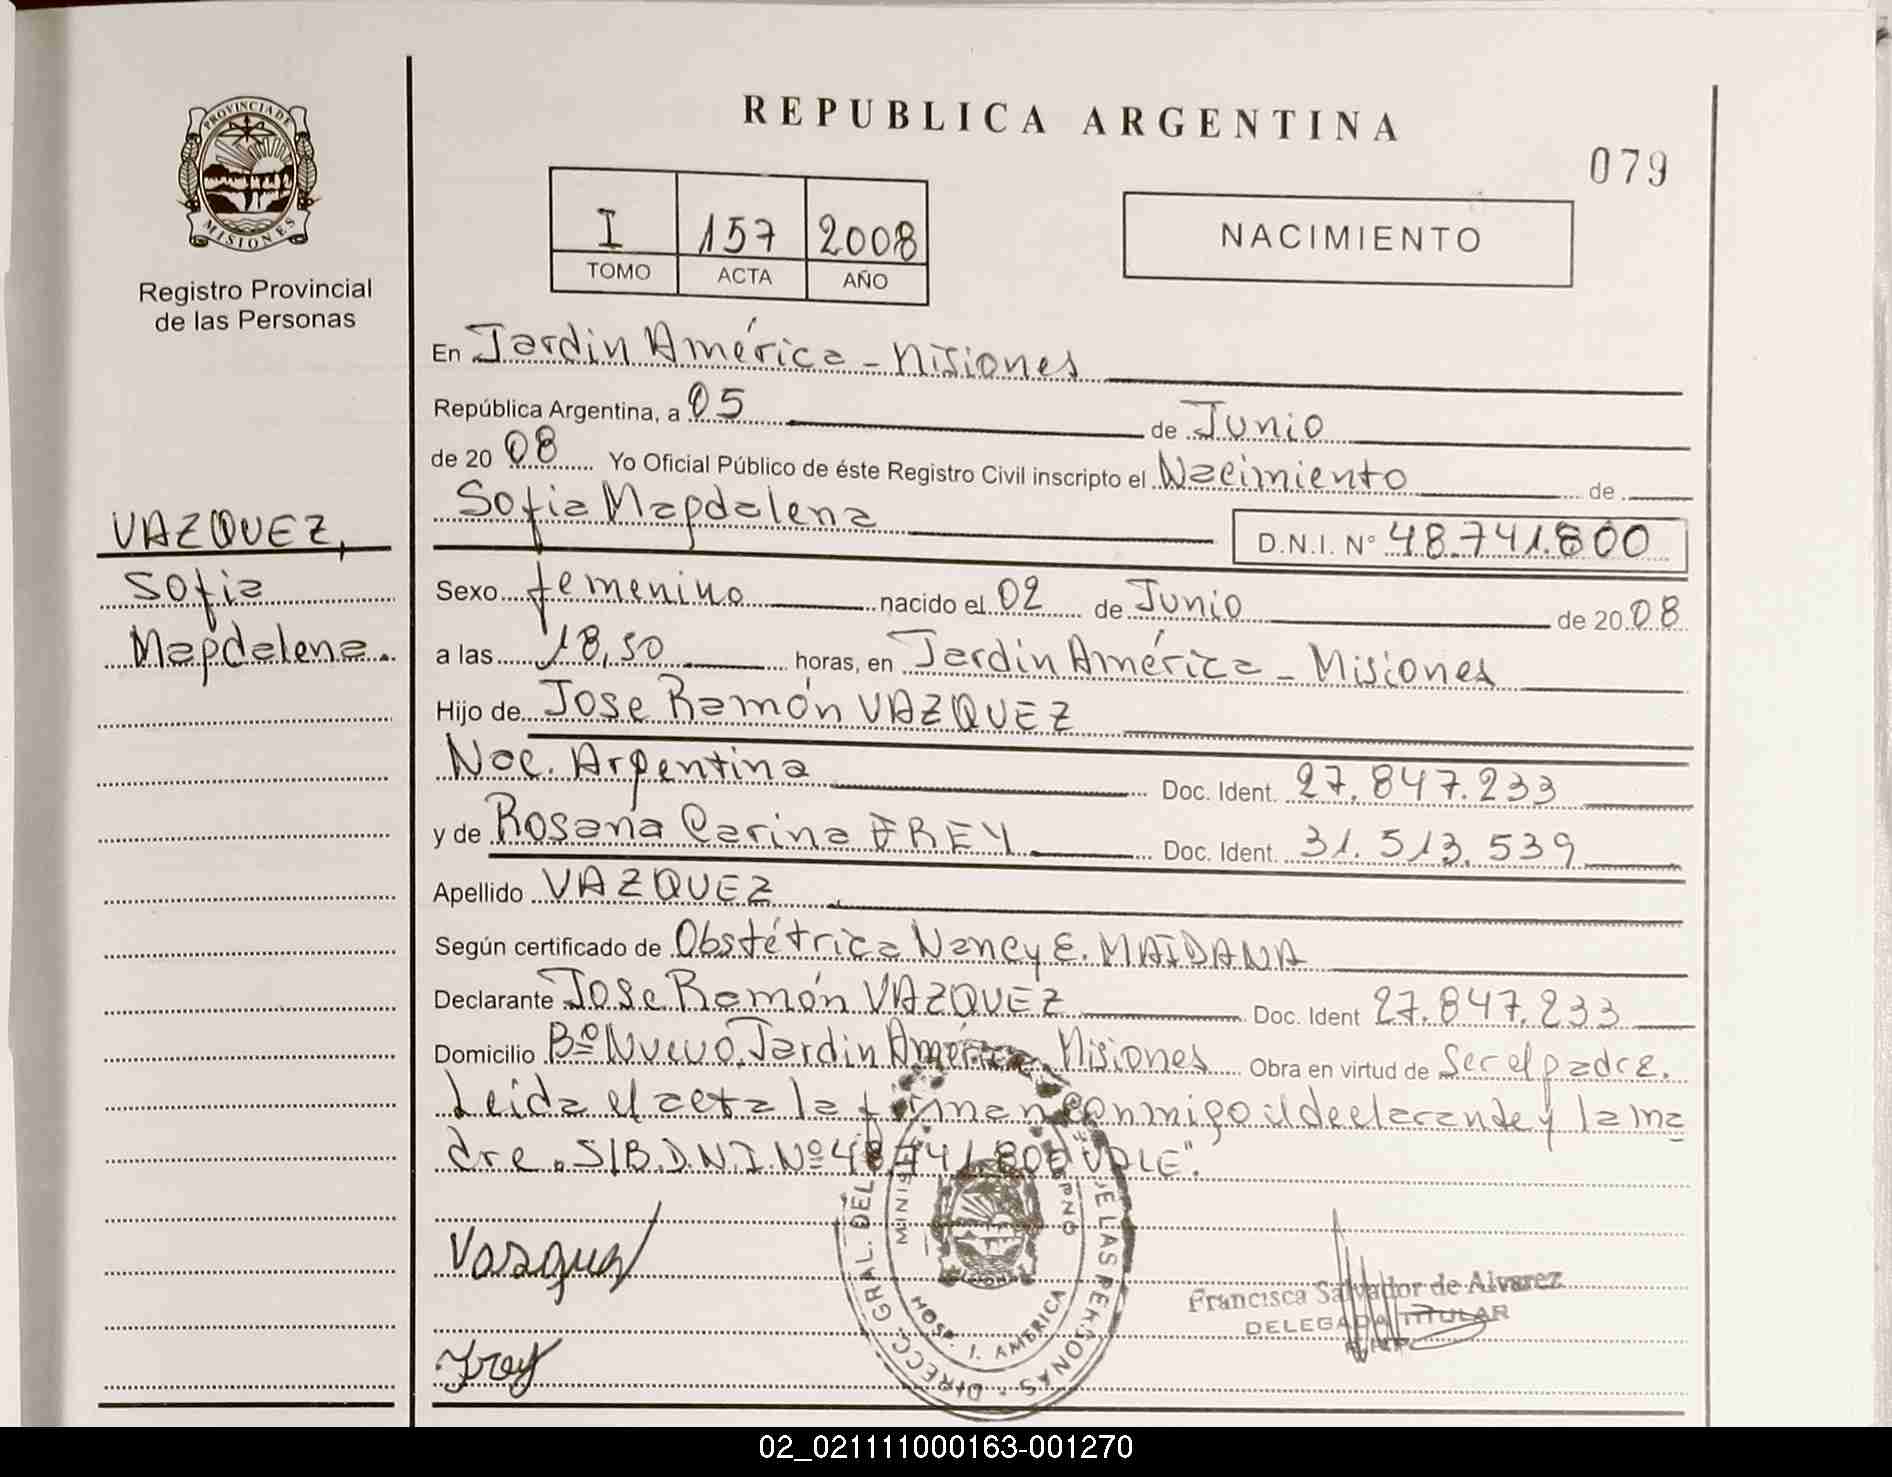 PROVINCIA DE
MISIONES
Registro Provincial
de las Personas
VAZQUEZ,
Sofia
Magdalena.
REPUBLICA ARGENTINA
079
I 157 2008
TOMO ACTA AÑO
NACIMIENTO
En Jardin América - Misiones
República Argentina, a 05 de Junio
de 20 08 Yo Oficial Público de éste Registro Civil inscripto el Nacimiento de
Sofia Magdalena D.N.I. Nº 48.741.800
Sexo femenino nacido el 02 de Junio de 20 08
a las 18,50 horas, en Jardin América - Misiones
Hijo de Jose Ramón VAZQUEZ
Nac. Argentina Doc. Ident. 27.847.233
y de Rosana Carina FREY Doc. Ident. 31.513.539
Apellido VAZQUEZ
Según certificado de Obstétrica Nancy E. MAIDANA
Declarante Jose Ramón VAZQUEZ Doc. Ident 27.847.233
Domicilio Bº Nuevo, Jardin América Misiones Obra en virtud de Ser el padre.
Leida el acta la firman conmigo el declarante y la ma
dre. S/B.D.N.I Nº 48741800 VALE".
Vazquez
DIRECC. GRAL. DEL DE LAS PERSONAS
HOSP. J. AMERICA
Francisca Salvador de Alvarez
DELEGADA TITULAR
Frey
02_021111000163-001270